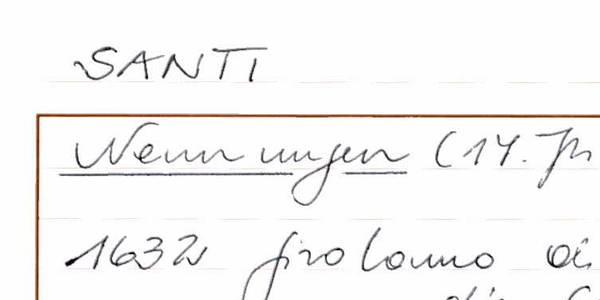 SANTI
Nennungen (17. Jh
1632 Girolamo di